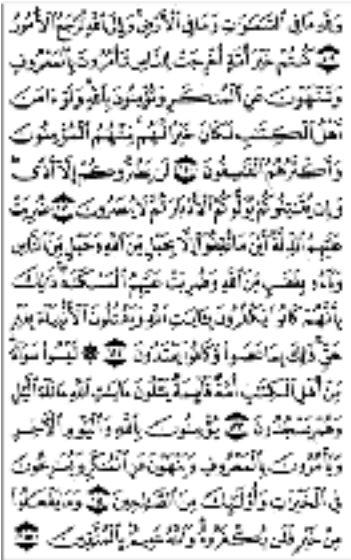 وَلِلَّهِ مَا فِي السَّمَاوَاتِ وَمَا فِي الْأَرْضِ وَإِلَى اللَّهِ تُرْجَعُ الْأُمُورُ
﴿١٠٩﴾ كُنْتُمْ خَيْرَ أُمَّةٍ أُخْرِجَتْ لِلنَّاسِ تَأْمُرُونَ بِالْمَعْرُوفِ
وَتَنْهَوْنَ عَنِ الْمُنْكَرِ وَتُؤْمِنُونَ بِاللَّهِ وَلَوْ آمَنَ
أَهْلُ الْكِتَابِ لَكَانَ خَيْرًا لَهُمْ مِنْهُمُ الْمُؤْمِنُونَ
وَأَكْثَرُهُمُ الْفَاسِقُونَ ﴿١١٠﴾ لَنْ يَضُرُّوكُمْ إِلَّا أَذًى
وَإِنْ يُقَاتِلُوكُمْ يُوَلُّوكُمُ الْأَدْبَارَ ثُمَّ لَا يُنْصَرُونَ ﴿١١١﴾ ضُرِبَتْ
عَلَيْهِمُ الذِّلَّةُ أَيْنَ مَا ثُقِفُوا إِلَّا بِحَبْلٍ مِنَ اللَّهِ وَحَبْلٍ مِنَ النَّاسِ
وَبَاءُوا بِغَضَبٍ مِنَ اللَّهِ وَضُرِبَتْ عَلَيْهِمُ الْمَسْكَنَةُ ذَلِكَ
بِأَنَّهُمْ كَانُوا يَكْفُرُونَ بِآيَاتِ اللَّهِ وَيَقْتُلُونَ الْأَنْبِيَاءَ بِغَيْرِ
حَقٍّ ذَلِكَ بِمَا عَصَوْا وَكَانُوا يَعْتَدُونَ ﴿١١٢﴾ ۞ لَيْسُوا سَوَاءً
مِنْ أَهْلِ الْكِتَابِ أُمَّةٌ قَائِمَةٌ يَتْلُونَ آيَاتِ اللَّهِ آنَاءَ اللَّيْلِ
وَهُمْ يَسْجُدُونَ ﴿١١٣﴾ يُؤْمِنُونَ بِاللَّهِ وَالْيَوْمِ الْآخِرِ
وَيَأْمُرُونَ بِالْمَعْرُوفِ وَيَنْهَوْنَ عَنِ الْمُنْكَرِ وَيُسَارِعُونَ
فِي الْخَيْرَاتِ وَأُولَئِكَ مِنَ الصَّالِحِينَ ﴿١١٤﴾ وَمَا يَفْعَلُوا
مِنْ خَيْرٍ فَلَنْ يُكْفَرُوهُ وَاللَّهُ عَلِيمٌ بِالْمُتَّقِينَ ﴿١١٥﴾